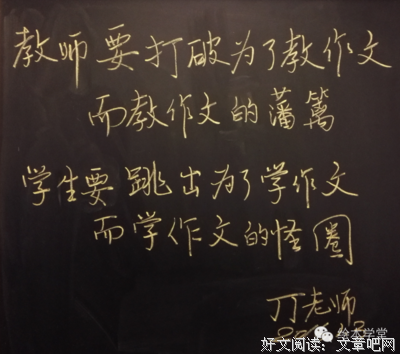 教师要打破为了教作文
而教作文的藩篱
学生要跳出为了学作文
而学作文的怪圈
丁老师
绘本学堂
好文阅读：文章吧网